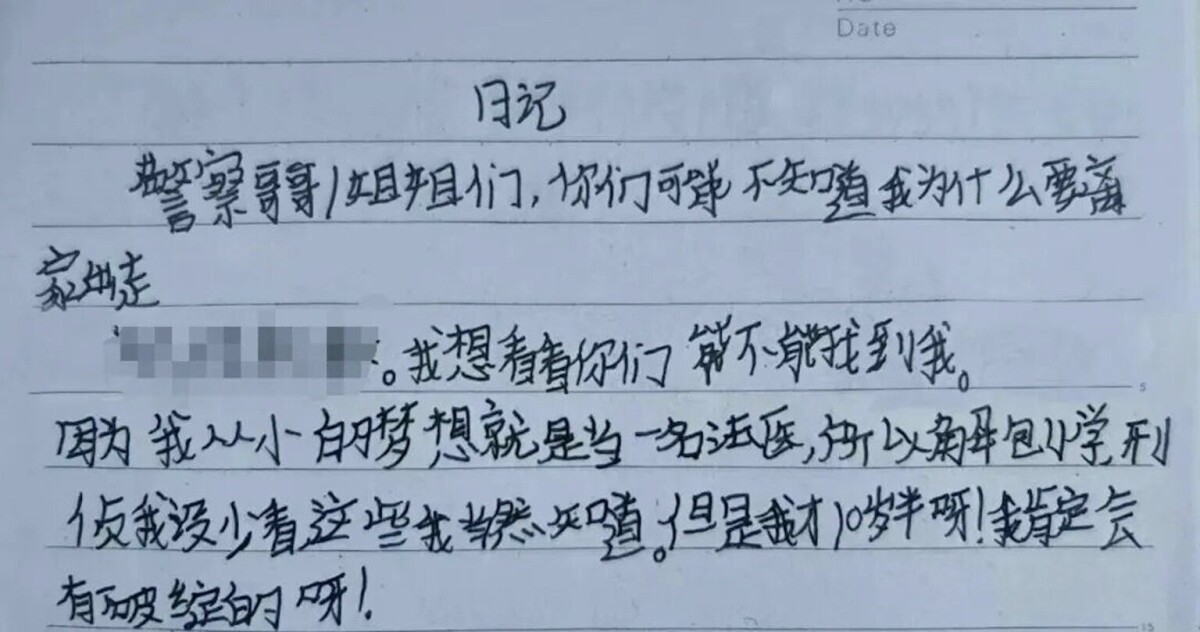 Date
日记
警察哥哥/姐姐们,你们可能不知道我为什么要离
家出走
。我想看看你们能不能找到我。
因为我从小的梦想就是当一名法医,所以解刨学,刑
侦我没少看这些我当然知道。但是我才10岁半呀!我肯定会
有破绽的呀!